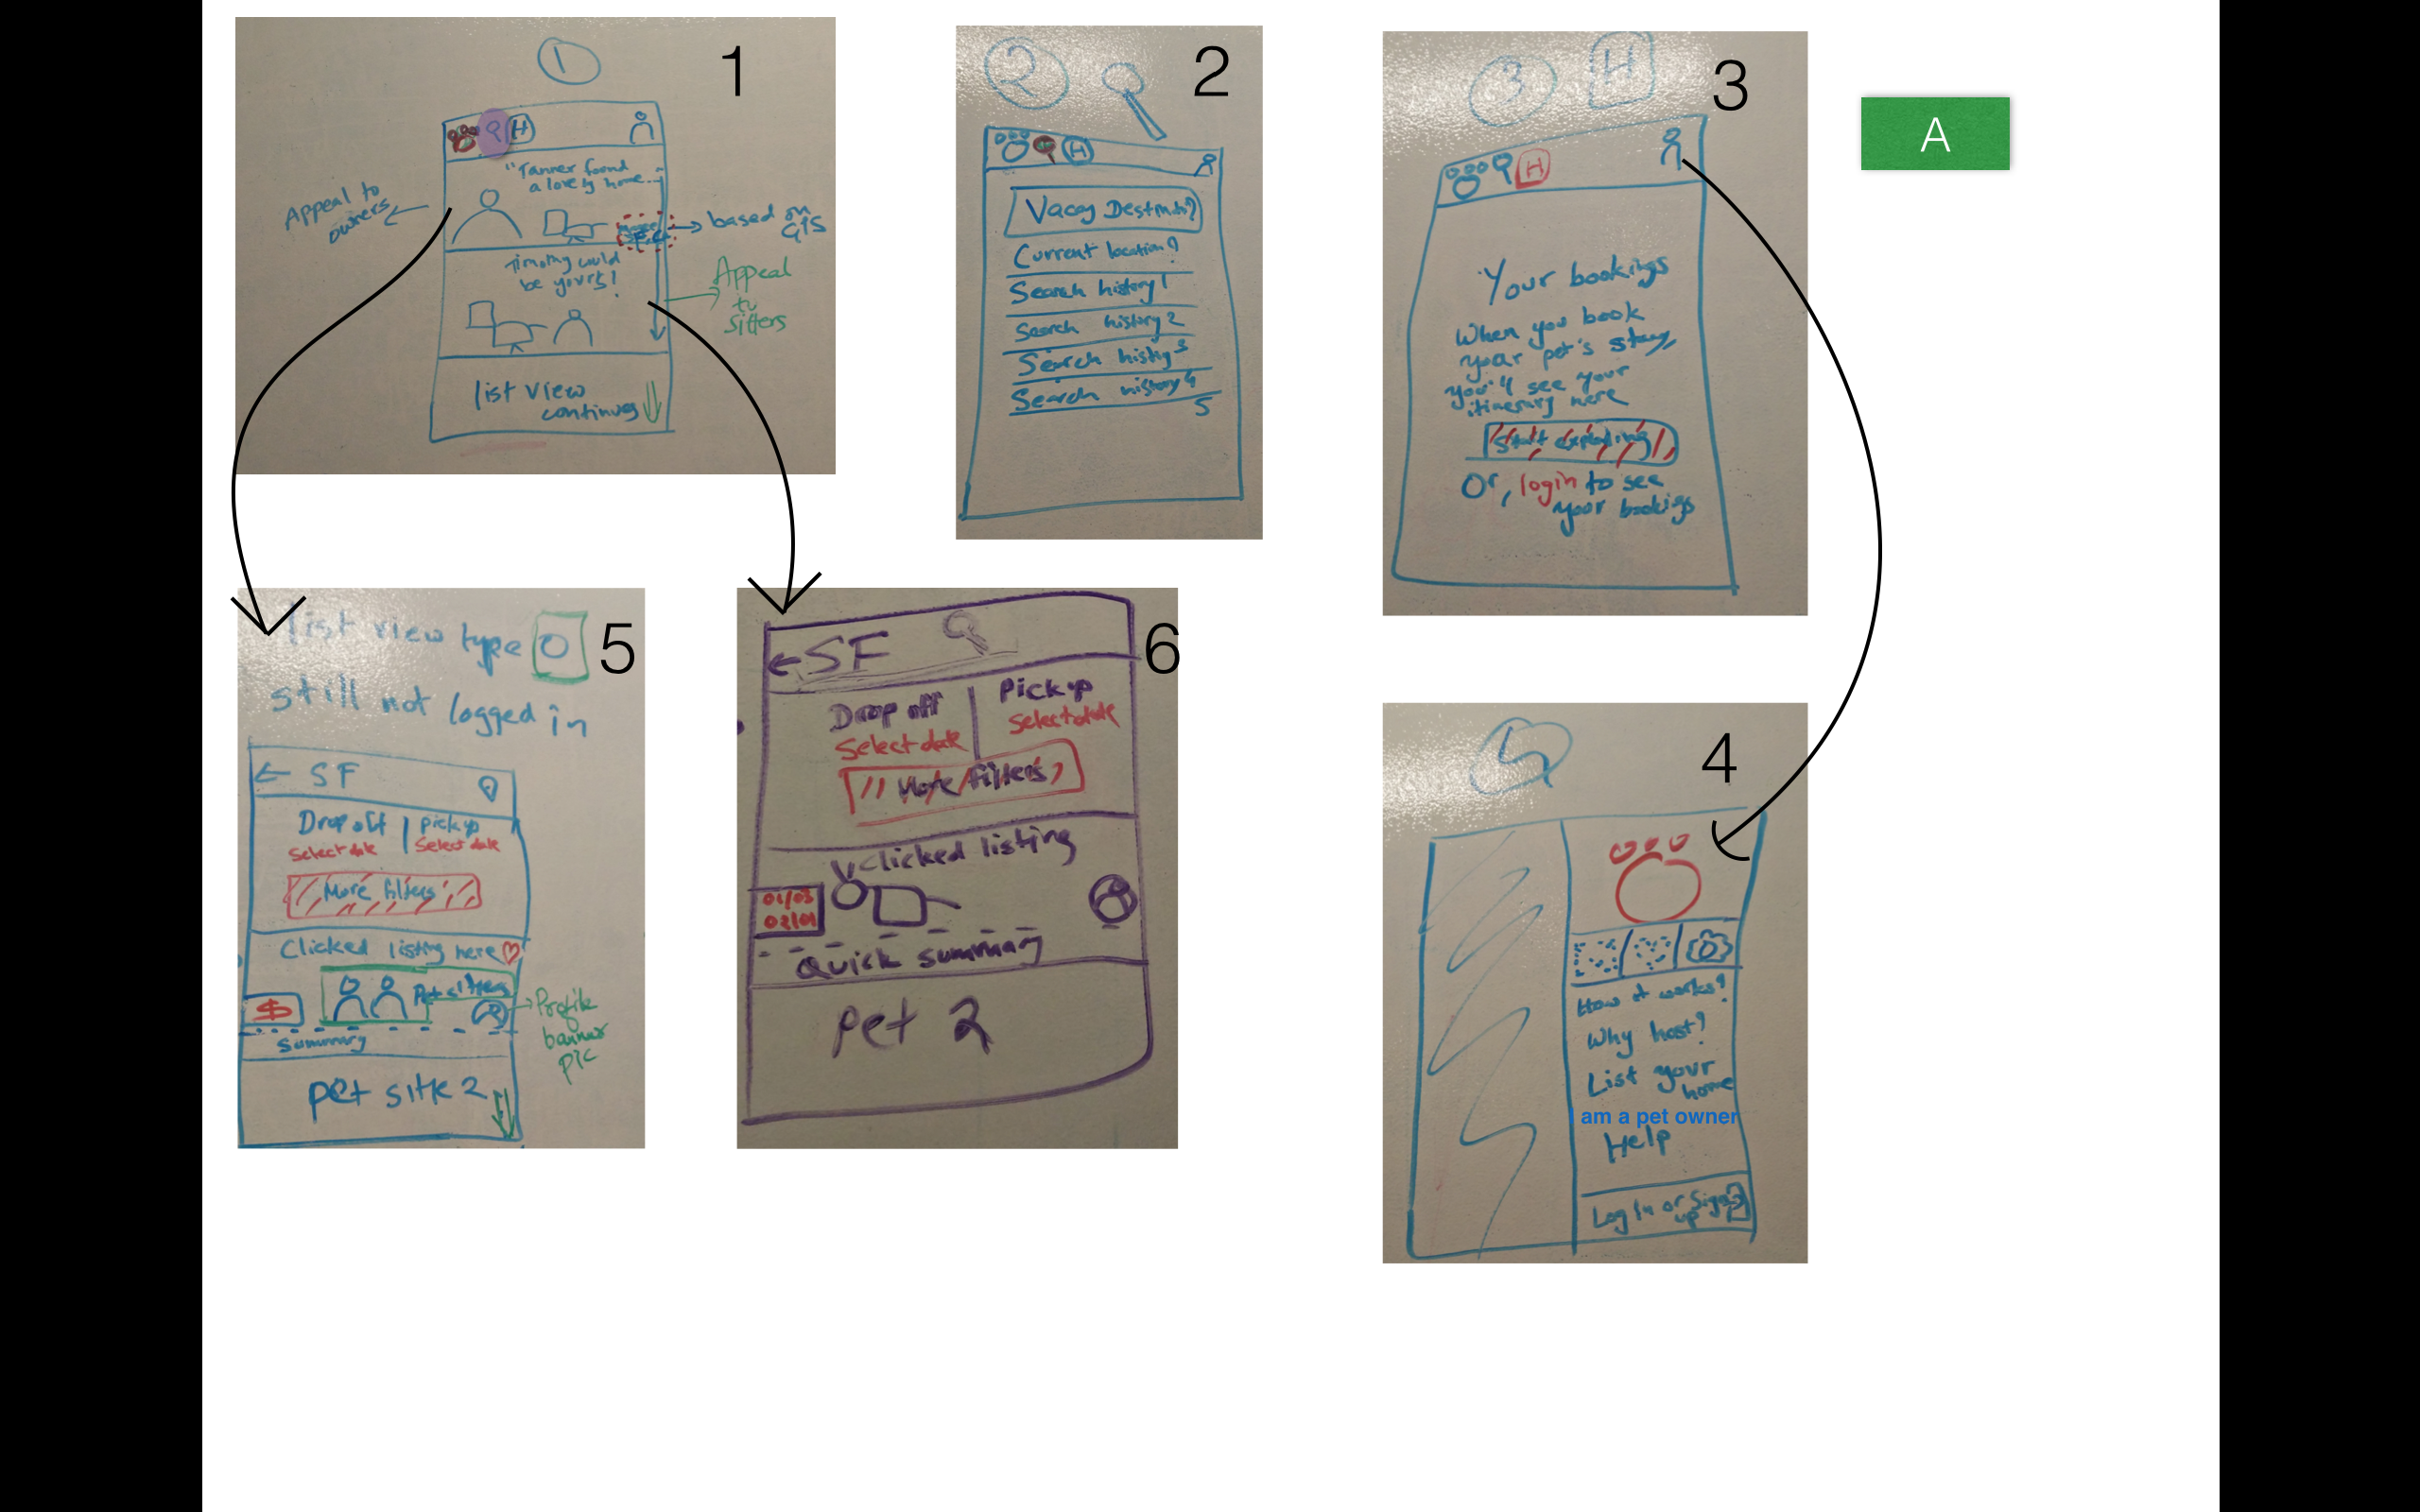 1
1
H
"Tanner found
a lovely home...
Appeal to
owners
based on
GIS
Timothy could
be yours!
Appeal
to
Sitters
list view
continues
2
2
H
Vacay Destinatn?
Current location?
Search history 1
Search history 2
Search histry 3
Search history 4
5
3
H
3
H
Your bookings
When you book
your pet's stay,
you'll see your
itinerary here
Start exploring
Or, login to see
your bookings
A
list view type
5
still not logged in
← SF
Drop off | Pickup
Select date Select date
More filters
Clicked listing here
$
Pet sitters
Profile
banner
pic
Summary
pet sitte 2
6
← SF
Drop off | Pickup
Select date Select date
More filters
Clicked listing
01/03
02/01
Quick summary
pet 2
4
4
How it works?
Why host?
List your
home
I am a pet owner
Help
Log In or Sign
up